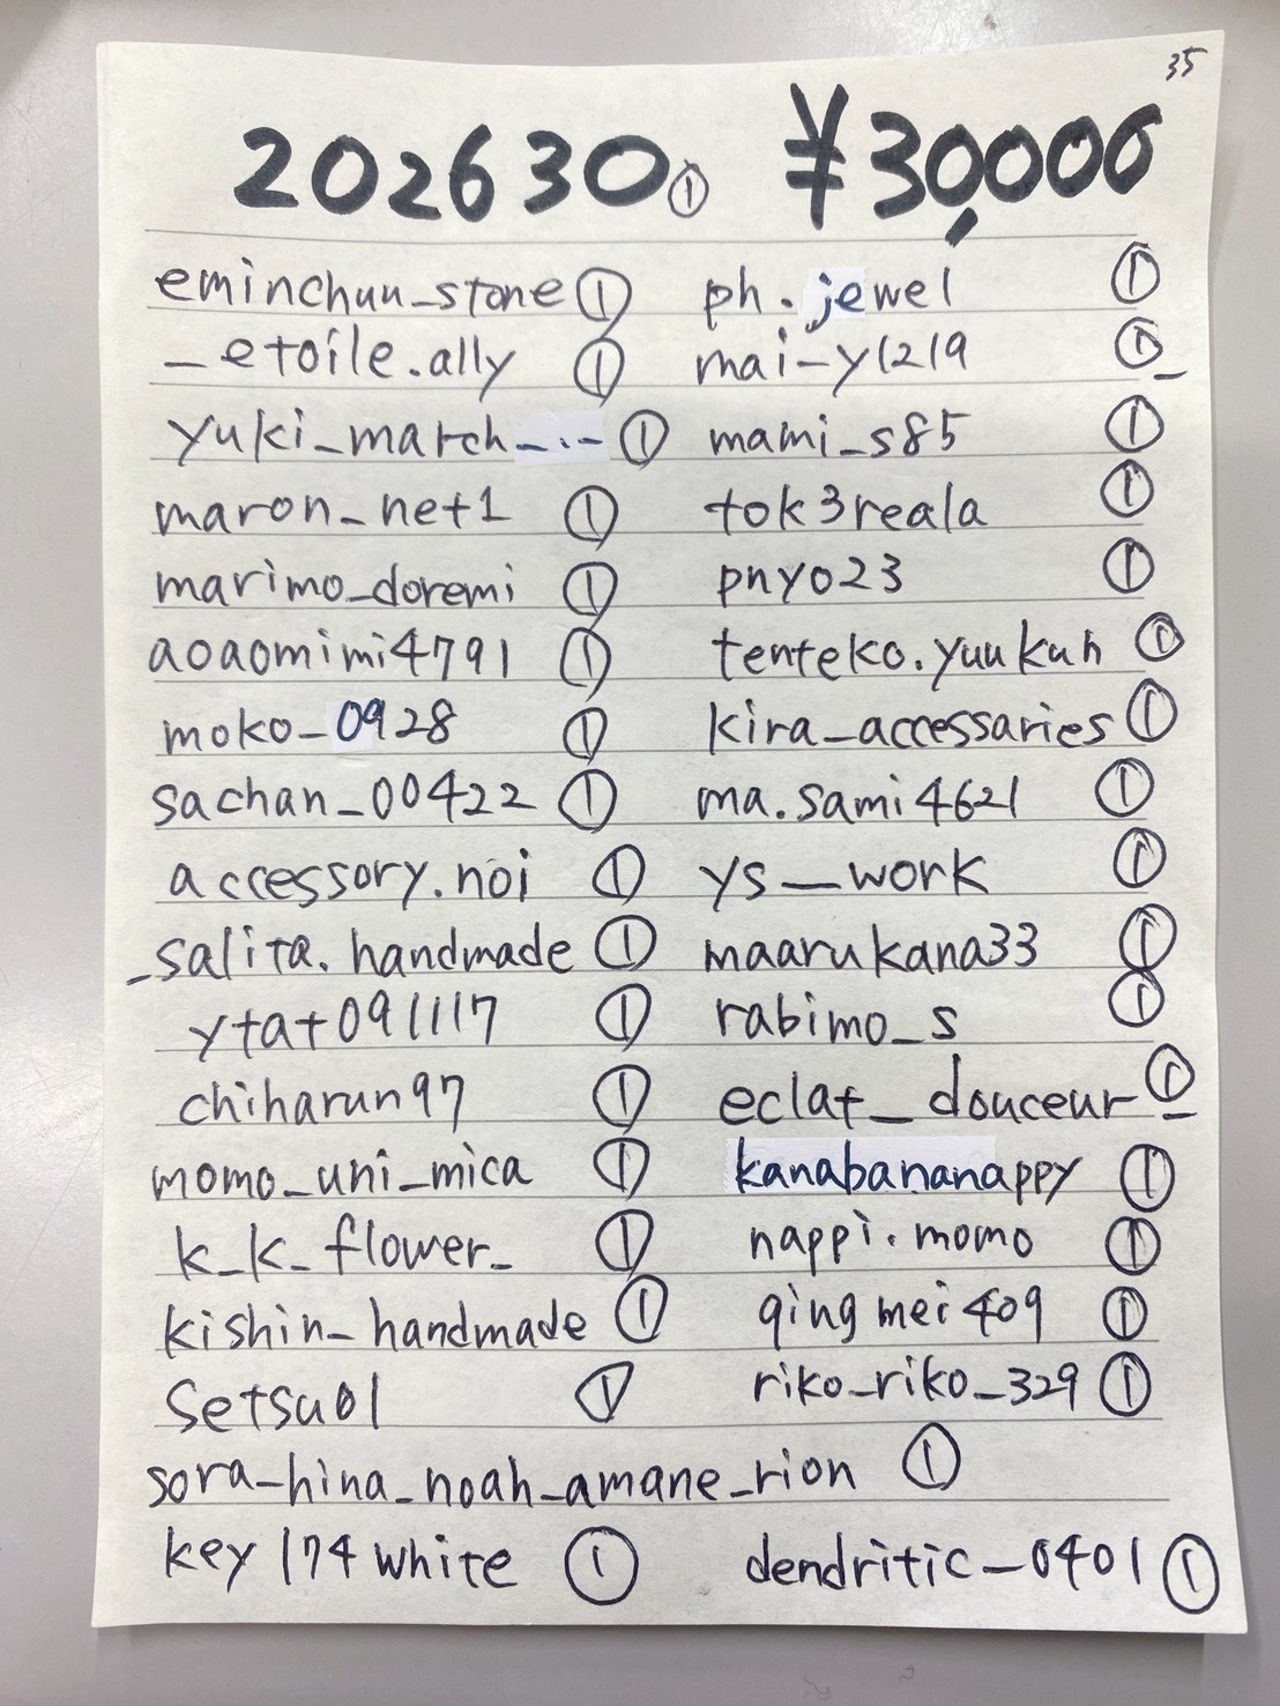 35
202630① ¥30,000
eminchuu_stone① ph.jewel ①
_etoile.ally ① mai-y1219 ①_
yuki_march_._ ① mami_s85 ①
maron_net1 ① tok3reala ①
marimo_doremi ① pnyo23 ①
aoaomimi4791 ① tenteko.yuukuh ①
moko_0928 ① kira_accessaries ①
sachan_00422 ① ma.sami4621 ①
accessory.noi ① ys__work ①
_salita.handmade ① maarukana33 ①
ytat091117 ① rabimo_s ①
chiharun97 ① eclat_douceur_ ①
momo_uni_mica ① kanabananappy ①
k_k_flower_ ① nappi.momo ①
kishin_handmade ① qingmei409 ①
setsu01 ① riko_riko_329 ①
sora_hina_noah_amane_rion ①
key174white ① dendritic_0401 ①